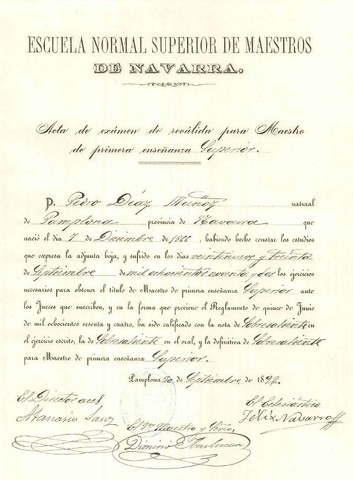 ESCUELA NORMAL SUPERIOR DE MAESTROS
DE NAVARRA.
Acta de exámen de reválida para Maestro
de primera enseñanza Superior.
D. Pedro Díaz Muñoz natural
de Pamplona provincia de Navarra que
nació el 7 de Diciembre de 18 , habiendo hecho constar los estudios
que expresa la adjunta hoja, y sufrido en los dias veintinueve y treinta
de Septiembre de mil ochocientos noventa y dos los ejercicios
necesarios para obtener el título de Maestro de primera enseñanza Superior ante
los Jueces que suscriben, y en la forma que previene el Reglamento de quince de Junio
de mil ochocientos sesenta y cuatro, ha sido calificado con la nota de Sobresaliente en
el ejercicio escrito, la de Sobresaliente en el oral, y la definitiva de Sobresaliente
para Maestro de primera enseñanza Superior.
Pamplona 30 Septiembre de 1892
El Director
El Eclesiástico
Atanasio Sanz
Félix Navarro
El Maestro y Srio.
Dionisio